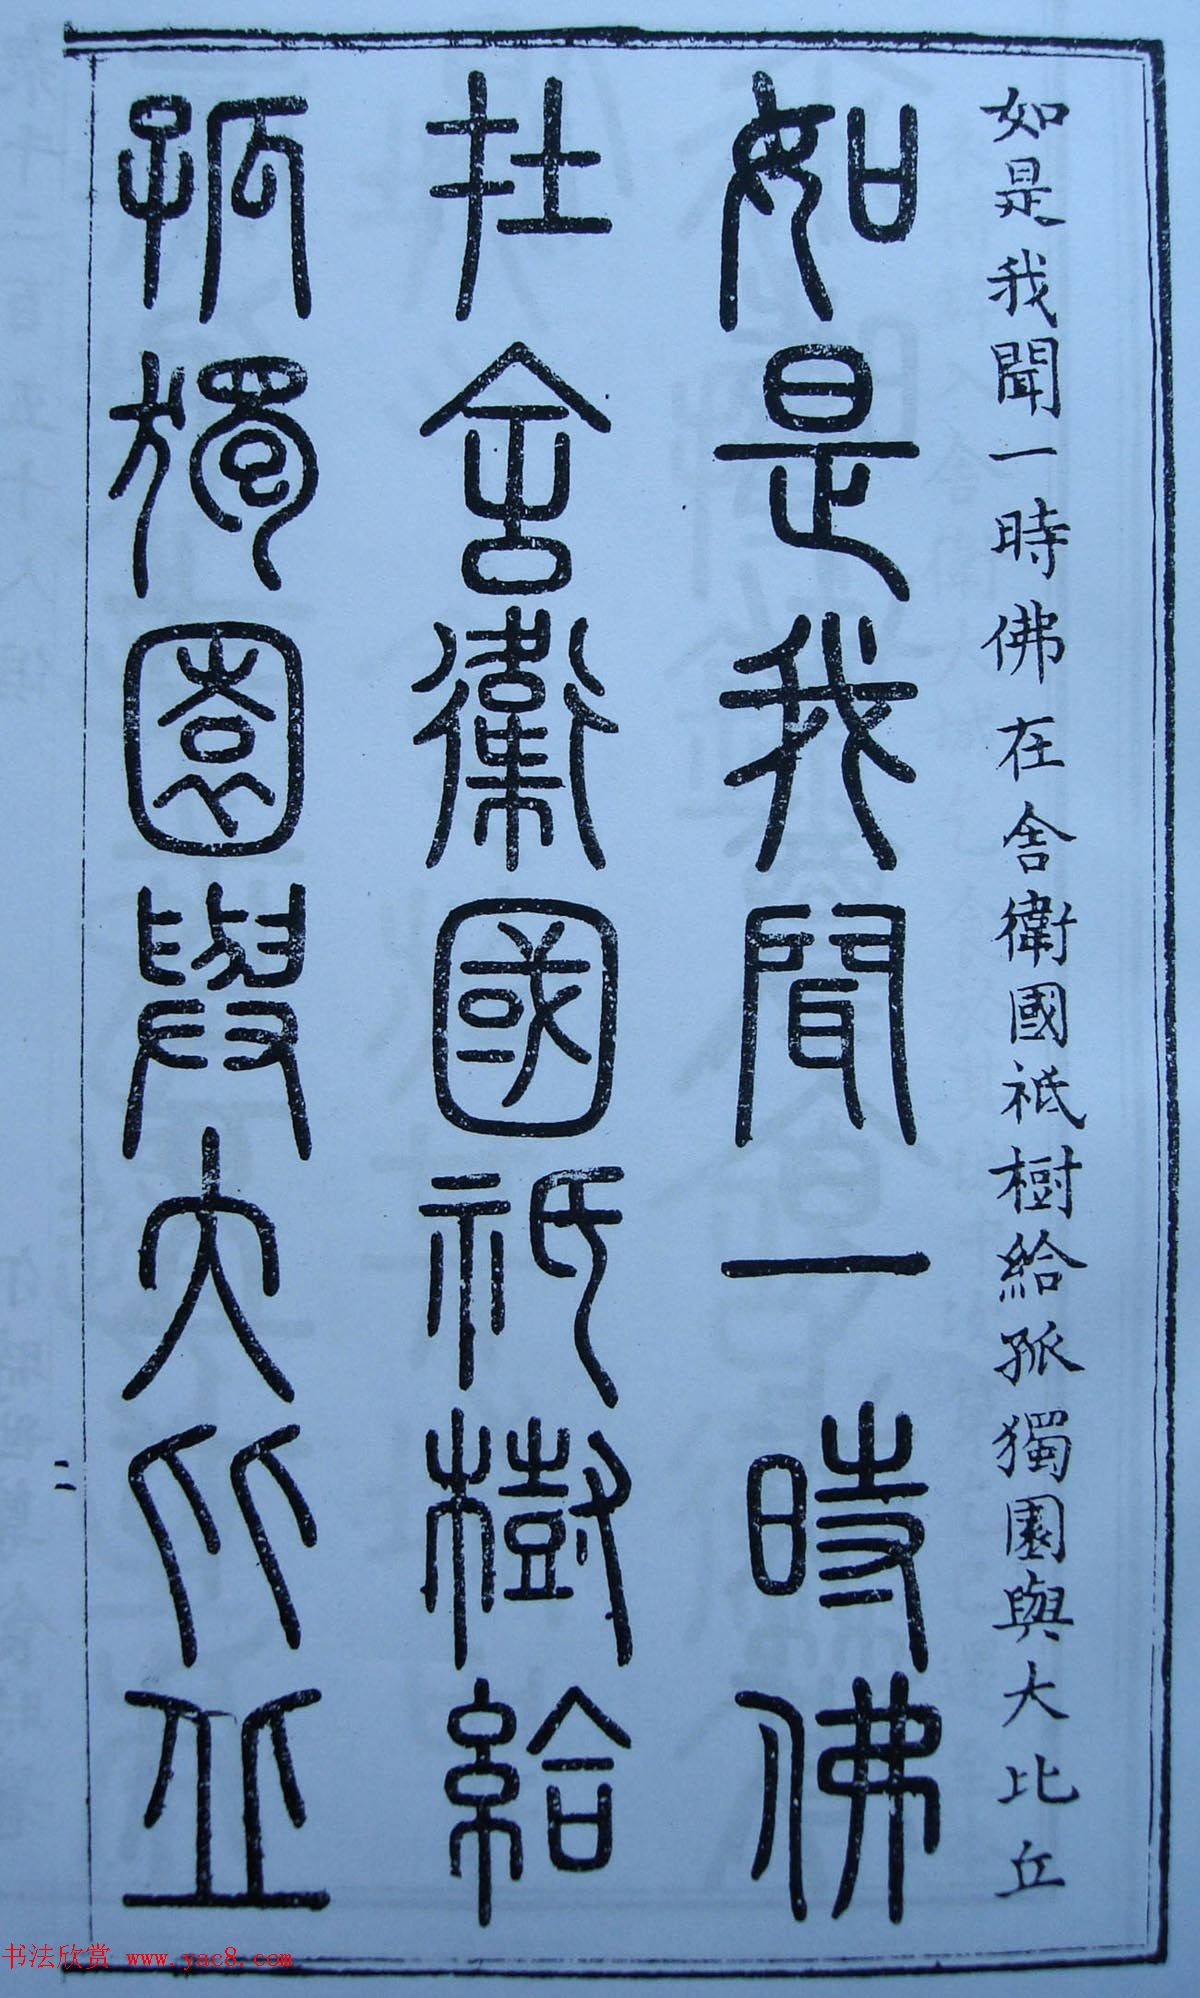 如是我聞一時佛在舍衛國祇樹給孤獨園與大比丘
如是我聞一時佛
在舍衛國祇樹給
孤獨園與大比丘
二
书法欣赏 www.yac8.com